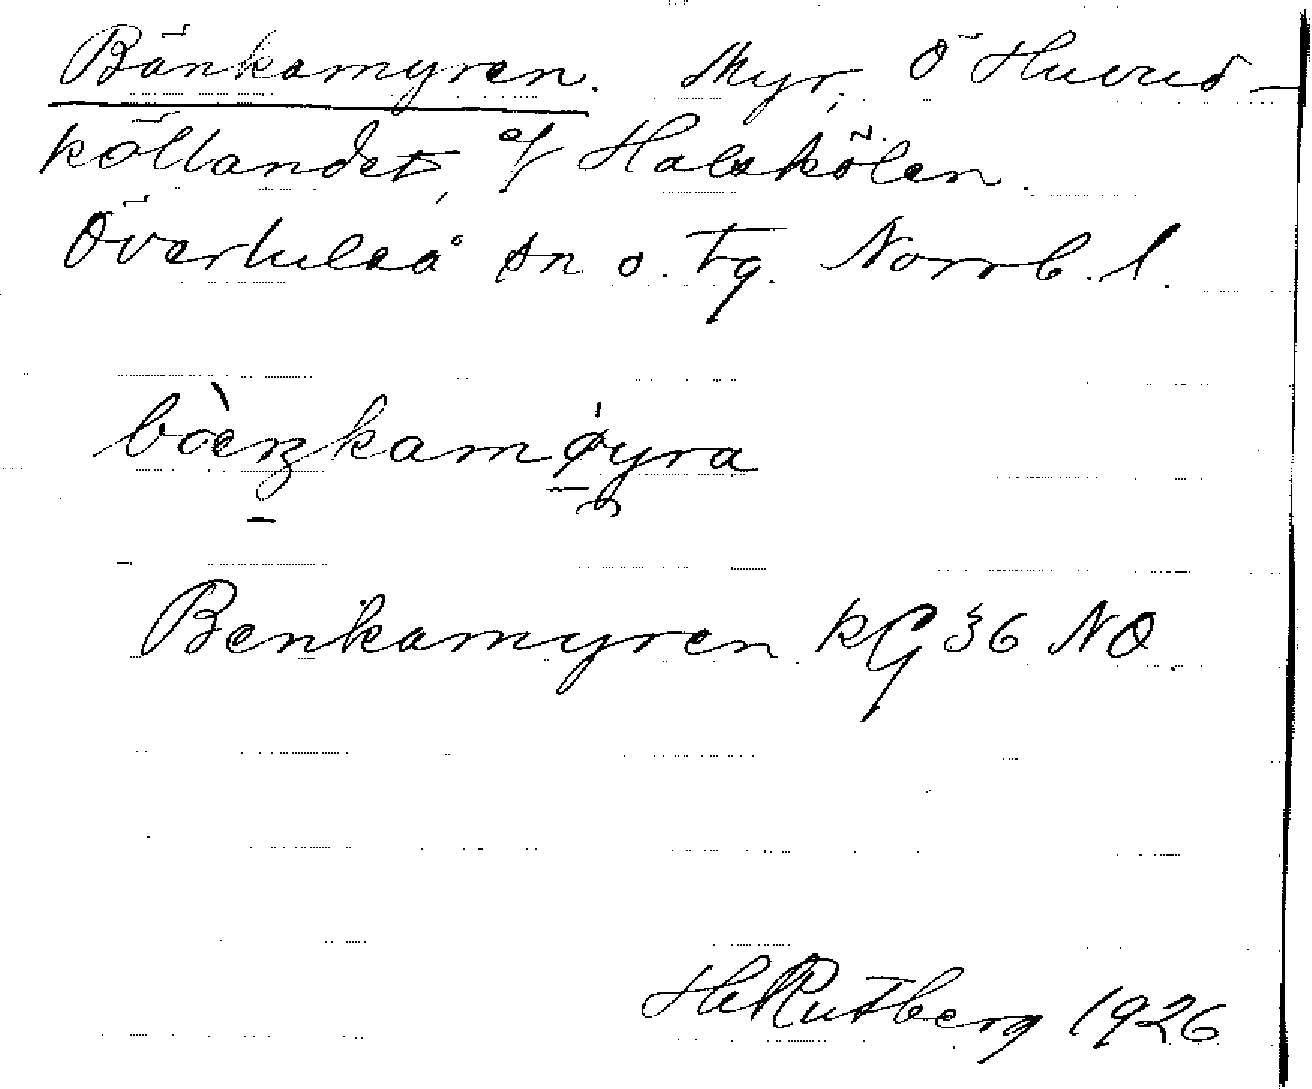 Bänkamyren. Myr, Ö Huvud-
källandet, o/ Halskölen.
Överluleå sn o. tg. Norrb. l.
bòeŋkamøyra
Benkamyren KG 36 NO.
HRutberg 1926